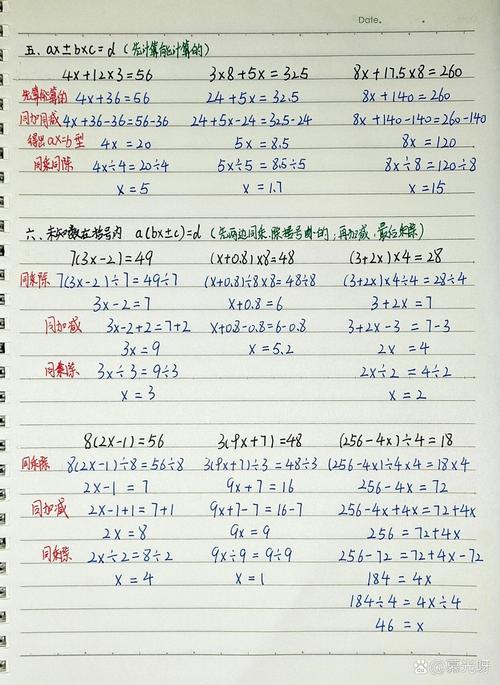 Date.
五、ax±b×c=d(先计算能计算的)
4x+12×3=56 3×8+5x=32.5 8x+17.5×8=260
先算能算的 4x+36=56 24+5x=32.5 8x+140=260
同加同减 4x+36-36=56-36 24+5x-24=32.5-24 8x+140-140=260-140
得出ax=b型 4x=20 5x=8.5 8x=120
同乘同除 4x÷4=20÷4 5x÷5=8.5÷5 8x÷8=120÷8
x=5 x=1.7 x=15
六、未知数在括号内 a(bx±c)=d(先两边同乘、除括号外的;再加减,最后乘除)
7(3x-2)=49 (x+0.8)×8=48 (3+2x)×4=28
同乘除 7(3x-2)÷7=49÷7 (x+0.8)÷8×8=48÷8 (3+2x)×4÷4=28÷4
3x-2=7 x+0.8=6 3+2x=7
同加减 3x-2+2=7+2 x+0.8-0.8=6-0.8 3+2x-3=7-3
3x=9 x=5.2 2x=4
同乘除 3x÷3=9÷3 2x÷2=4÷2
x=3 x=2
8(2x-1)=56 3(9x+7)=48 (256-4x)÷4=18
同乘除 8(2x-1)÷8=56÷8 3(9x+7)÷3=48÷3 (256-4x)÷4×4=18×4
2x-1=7 9x+7=16 256-4x=72
同加减 2x-1+1=7+1 9x+7-7=16-7 256-4x+4x=72+4x
2x=8 9x=9 256=72+4x
同乘除 2x÷2=8÷2 9x÷9=9÷9 256-72=72+4x-72
x=4 x=1 184=4x
184÷4=4x÷4
46=x
@慕光呀